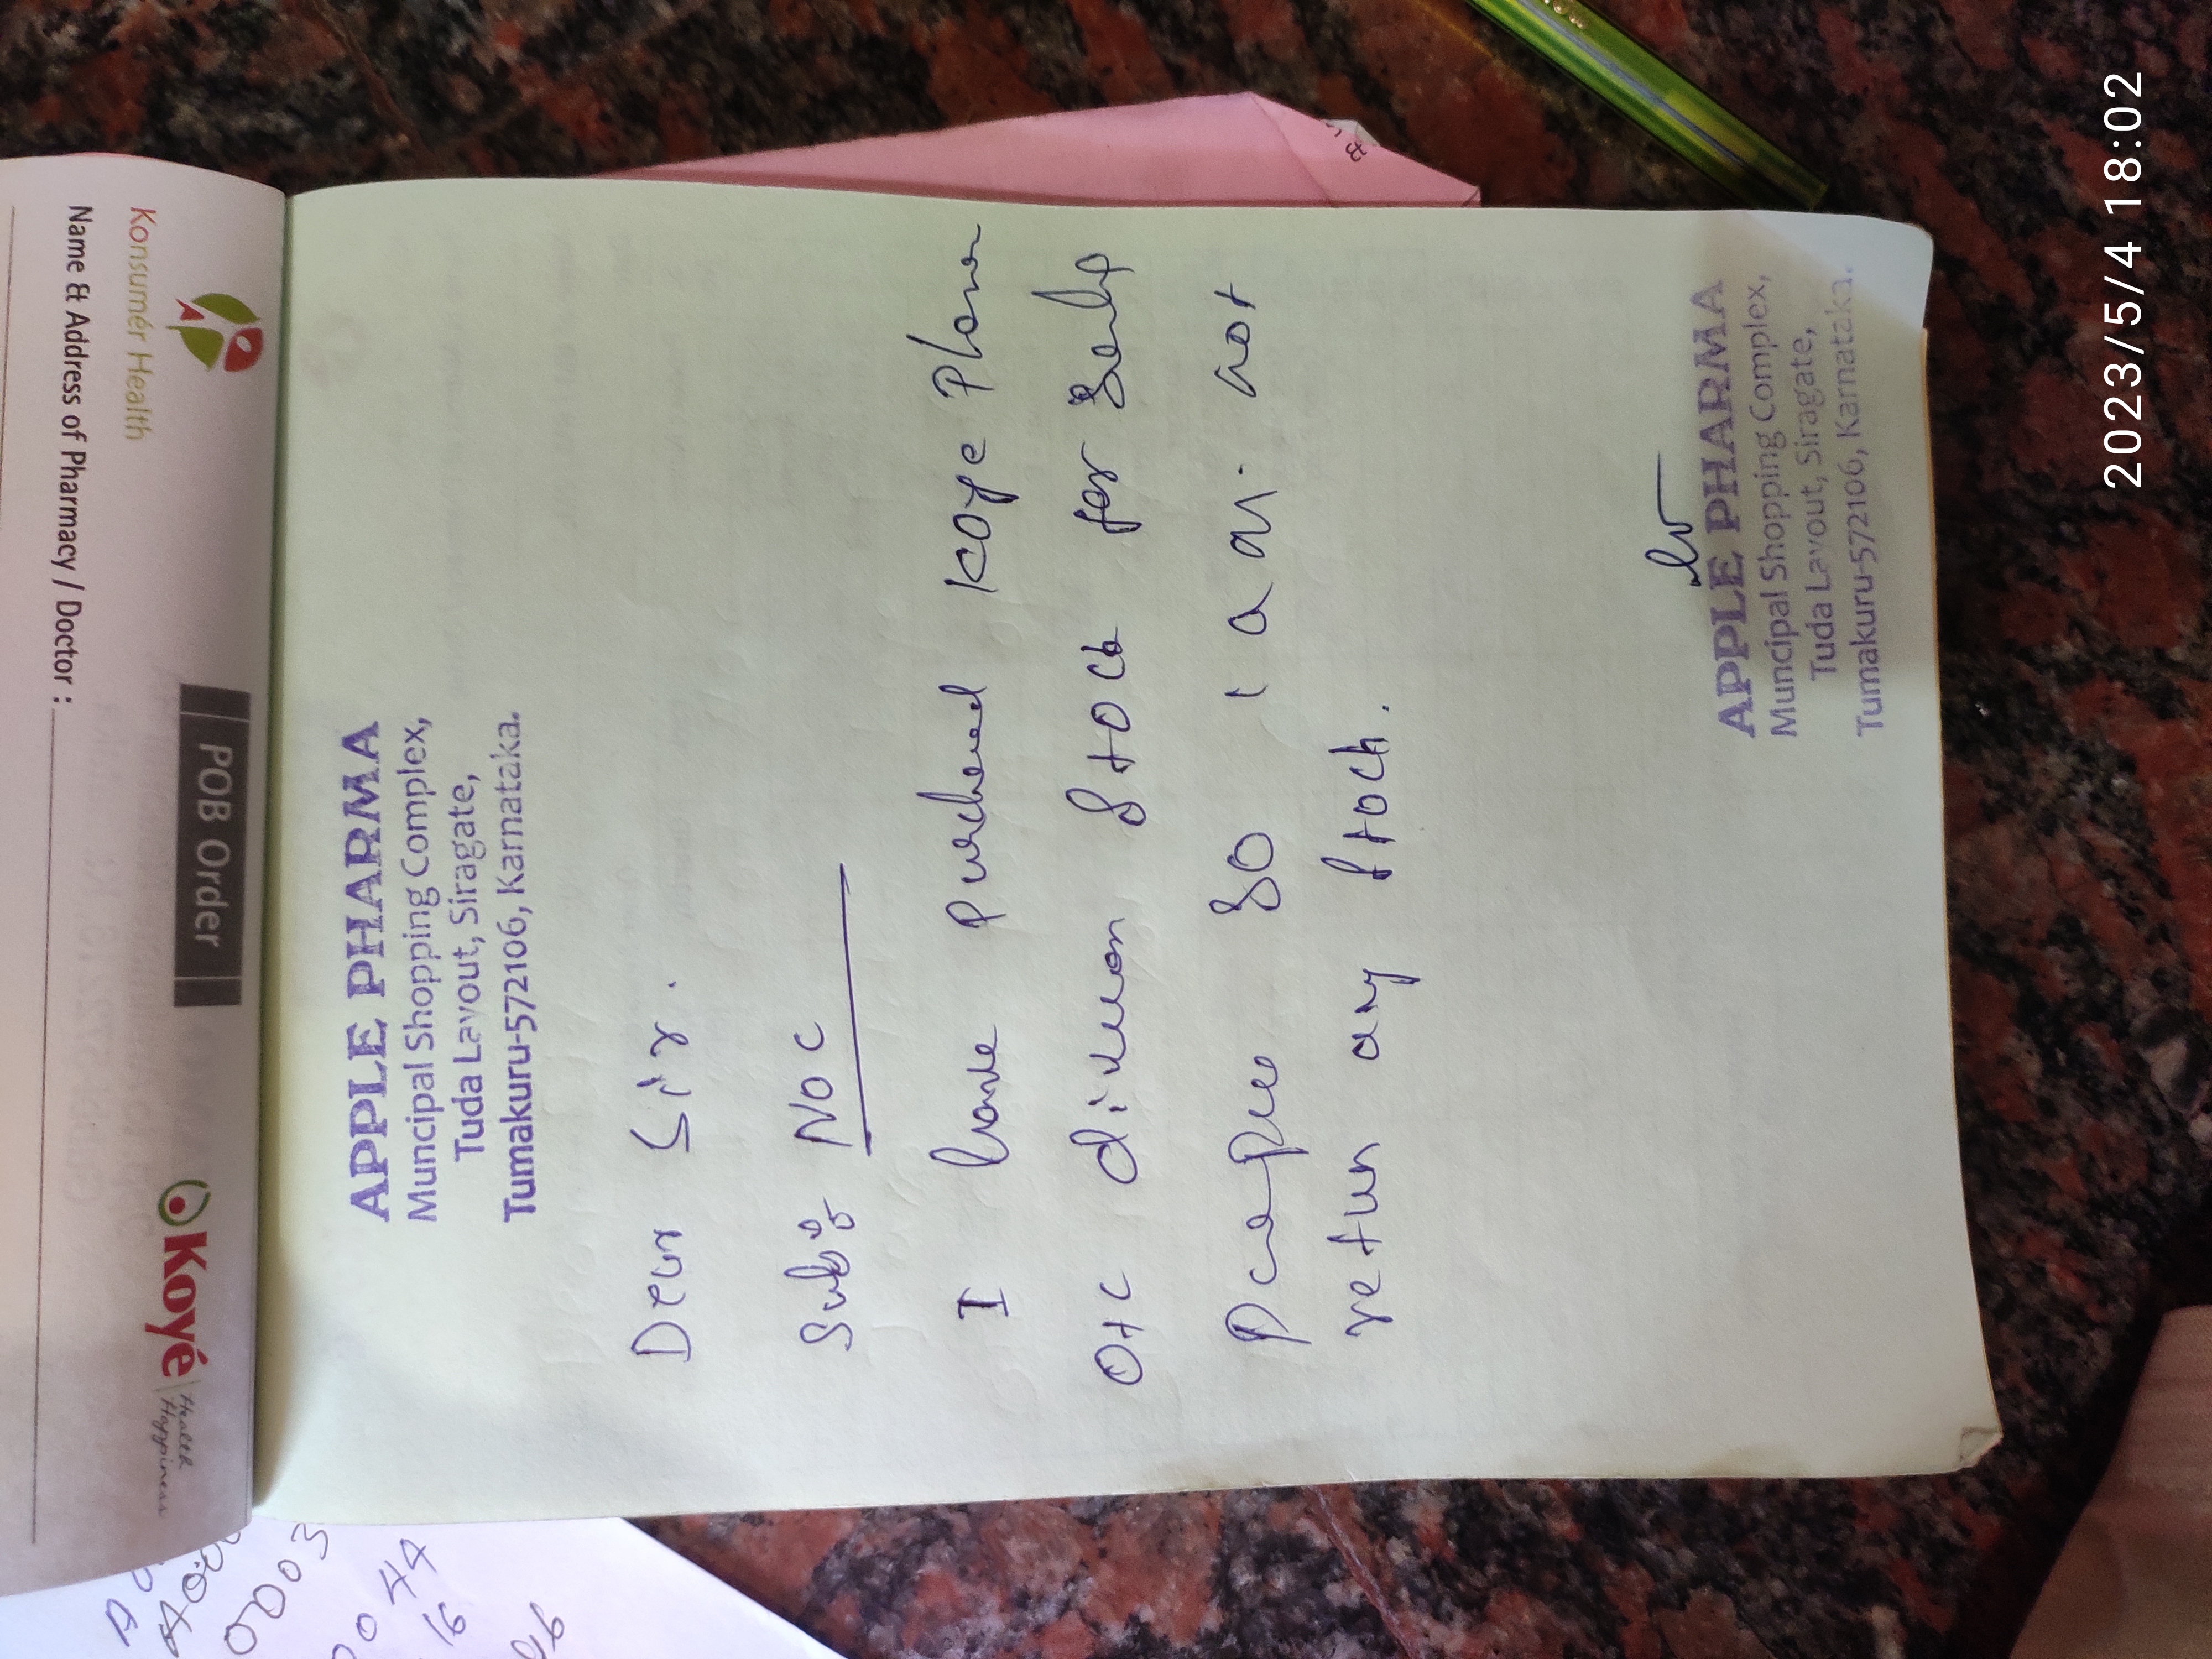 Koyé
Health
Happiness
POB Order
Konsumér Health
Name & Address of Pharmacy / Doctor :
APPLE PHARMA
Muncipal Shopping Complex,
Tuda Layout, Siragate,
Tumakuru-572106, Karnataka.
Dear Sir.
Sub:- NOC
I have Purchased KOYE Pharma
OTC division Stock for
So I am not
return any stock.
APPLE PHARMA
Muncipal Shopping Complex,
Tuda Layout, Siragate,
Tumakuru-572106, Karnataka.
0003
44
16
2023/5/4 18:02